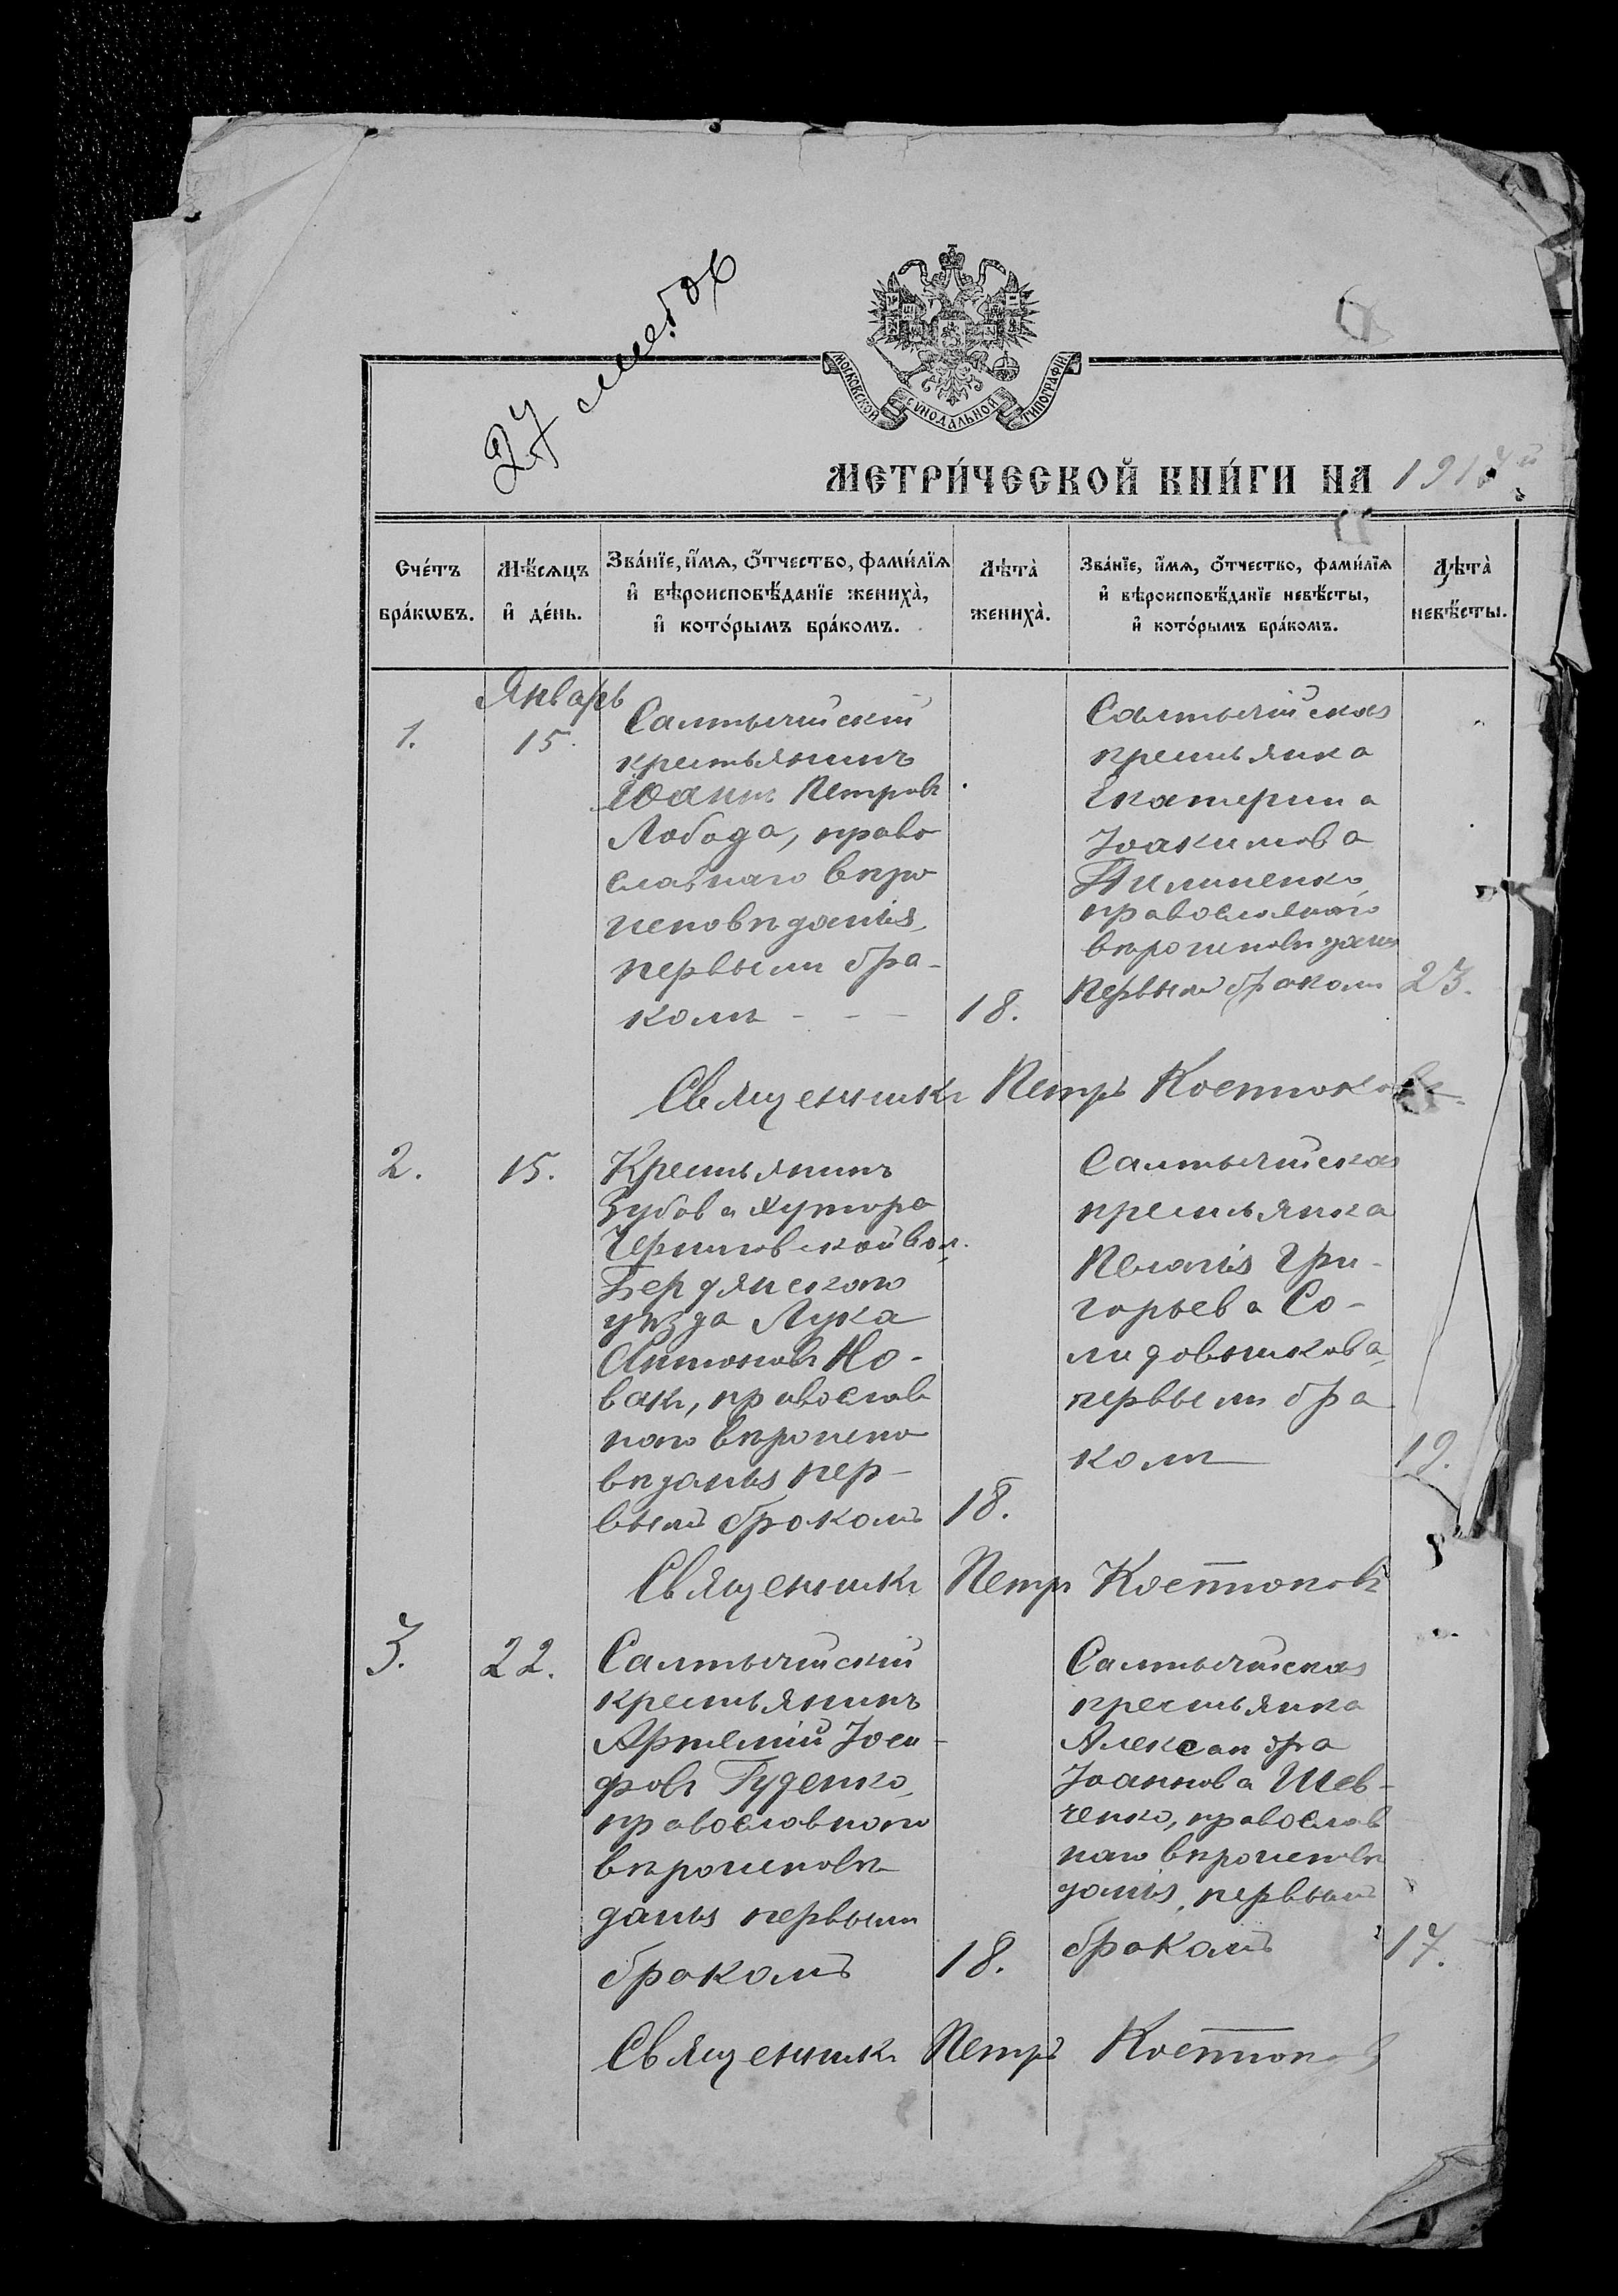 27 листов
МОСКОВСКОЙ СѴНОДАЛЬНОЙ ТИПОГРАФІИ
МЕТРИ́ЧЕСКОЙ КНИ́ГИ НА 1917й
Сче́тъ бра́кѡвъ.
Мѣ́сяцъ и҆ де́нь.
Зва́нїе, и҆́мѧ, ѻ҆́тчество, фами́лїѧ
и҆ вѣроисповѣ́данїе жениха̀,
и҆ кото́рымъ бра́комъ.
Лѣта̀ жениха̀.
Зва́нїе, и҆́мѧ, ѻ҆́тчество, фами́лїѧ
и҆ вѣроисповѣ́данїе невѣ́сты,
и҆ кото́рымъ бра́комъ.
Лѣта̀ невѣ́сты.
Январь
1.
15.
Салтычійскій
крестьянинъ
Іоаннъ Петровъ
Лобода, право
славнаго вѣро
исповѣданія,
первымъ бра-
комъ
18.
Салтычійская
крестьянка
Екатерина
Іоакимова
Пилипенко,
православнаго
вѣроисповѣданія
первымъ бракомъ
23.
Священникъ Петръ
2.
15.
Крестьянинъ
Зубова хутора
Черниговской вол.
Бердянскаго
уѣзда Лука
Антоновъ Но-
вакъ, православ
наго вѣроиспо
вѣданія пер-
вымъ бракомъ
18.
Салтычійская
крестьянка
Пелагія Гри-
горьева Со-
лидовникова,
первымъ бра
комъ
19.
Священникъ Петръ
3.
22.
Салтычійскій
крестьянинъ
Артемій Іоси-
фовъ Гуденко,
православнаго
вѣроисповѣ
данія первымъ
бракомъ
18.
Салтычійская
крестьянка
Александра
Іоаннова Шев-
ченко, православ
наго вѣроисповѣ
данія, первымъ
бракомъ
17.
Священникъ Петръ